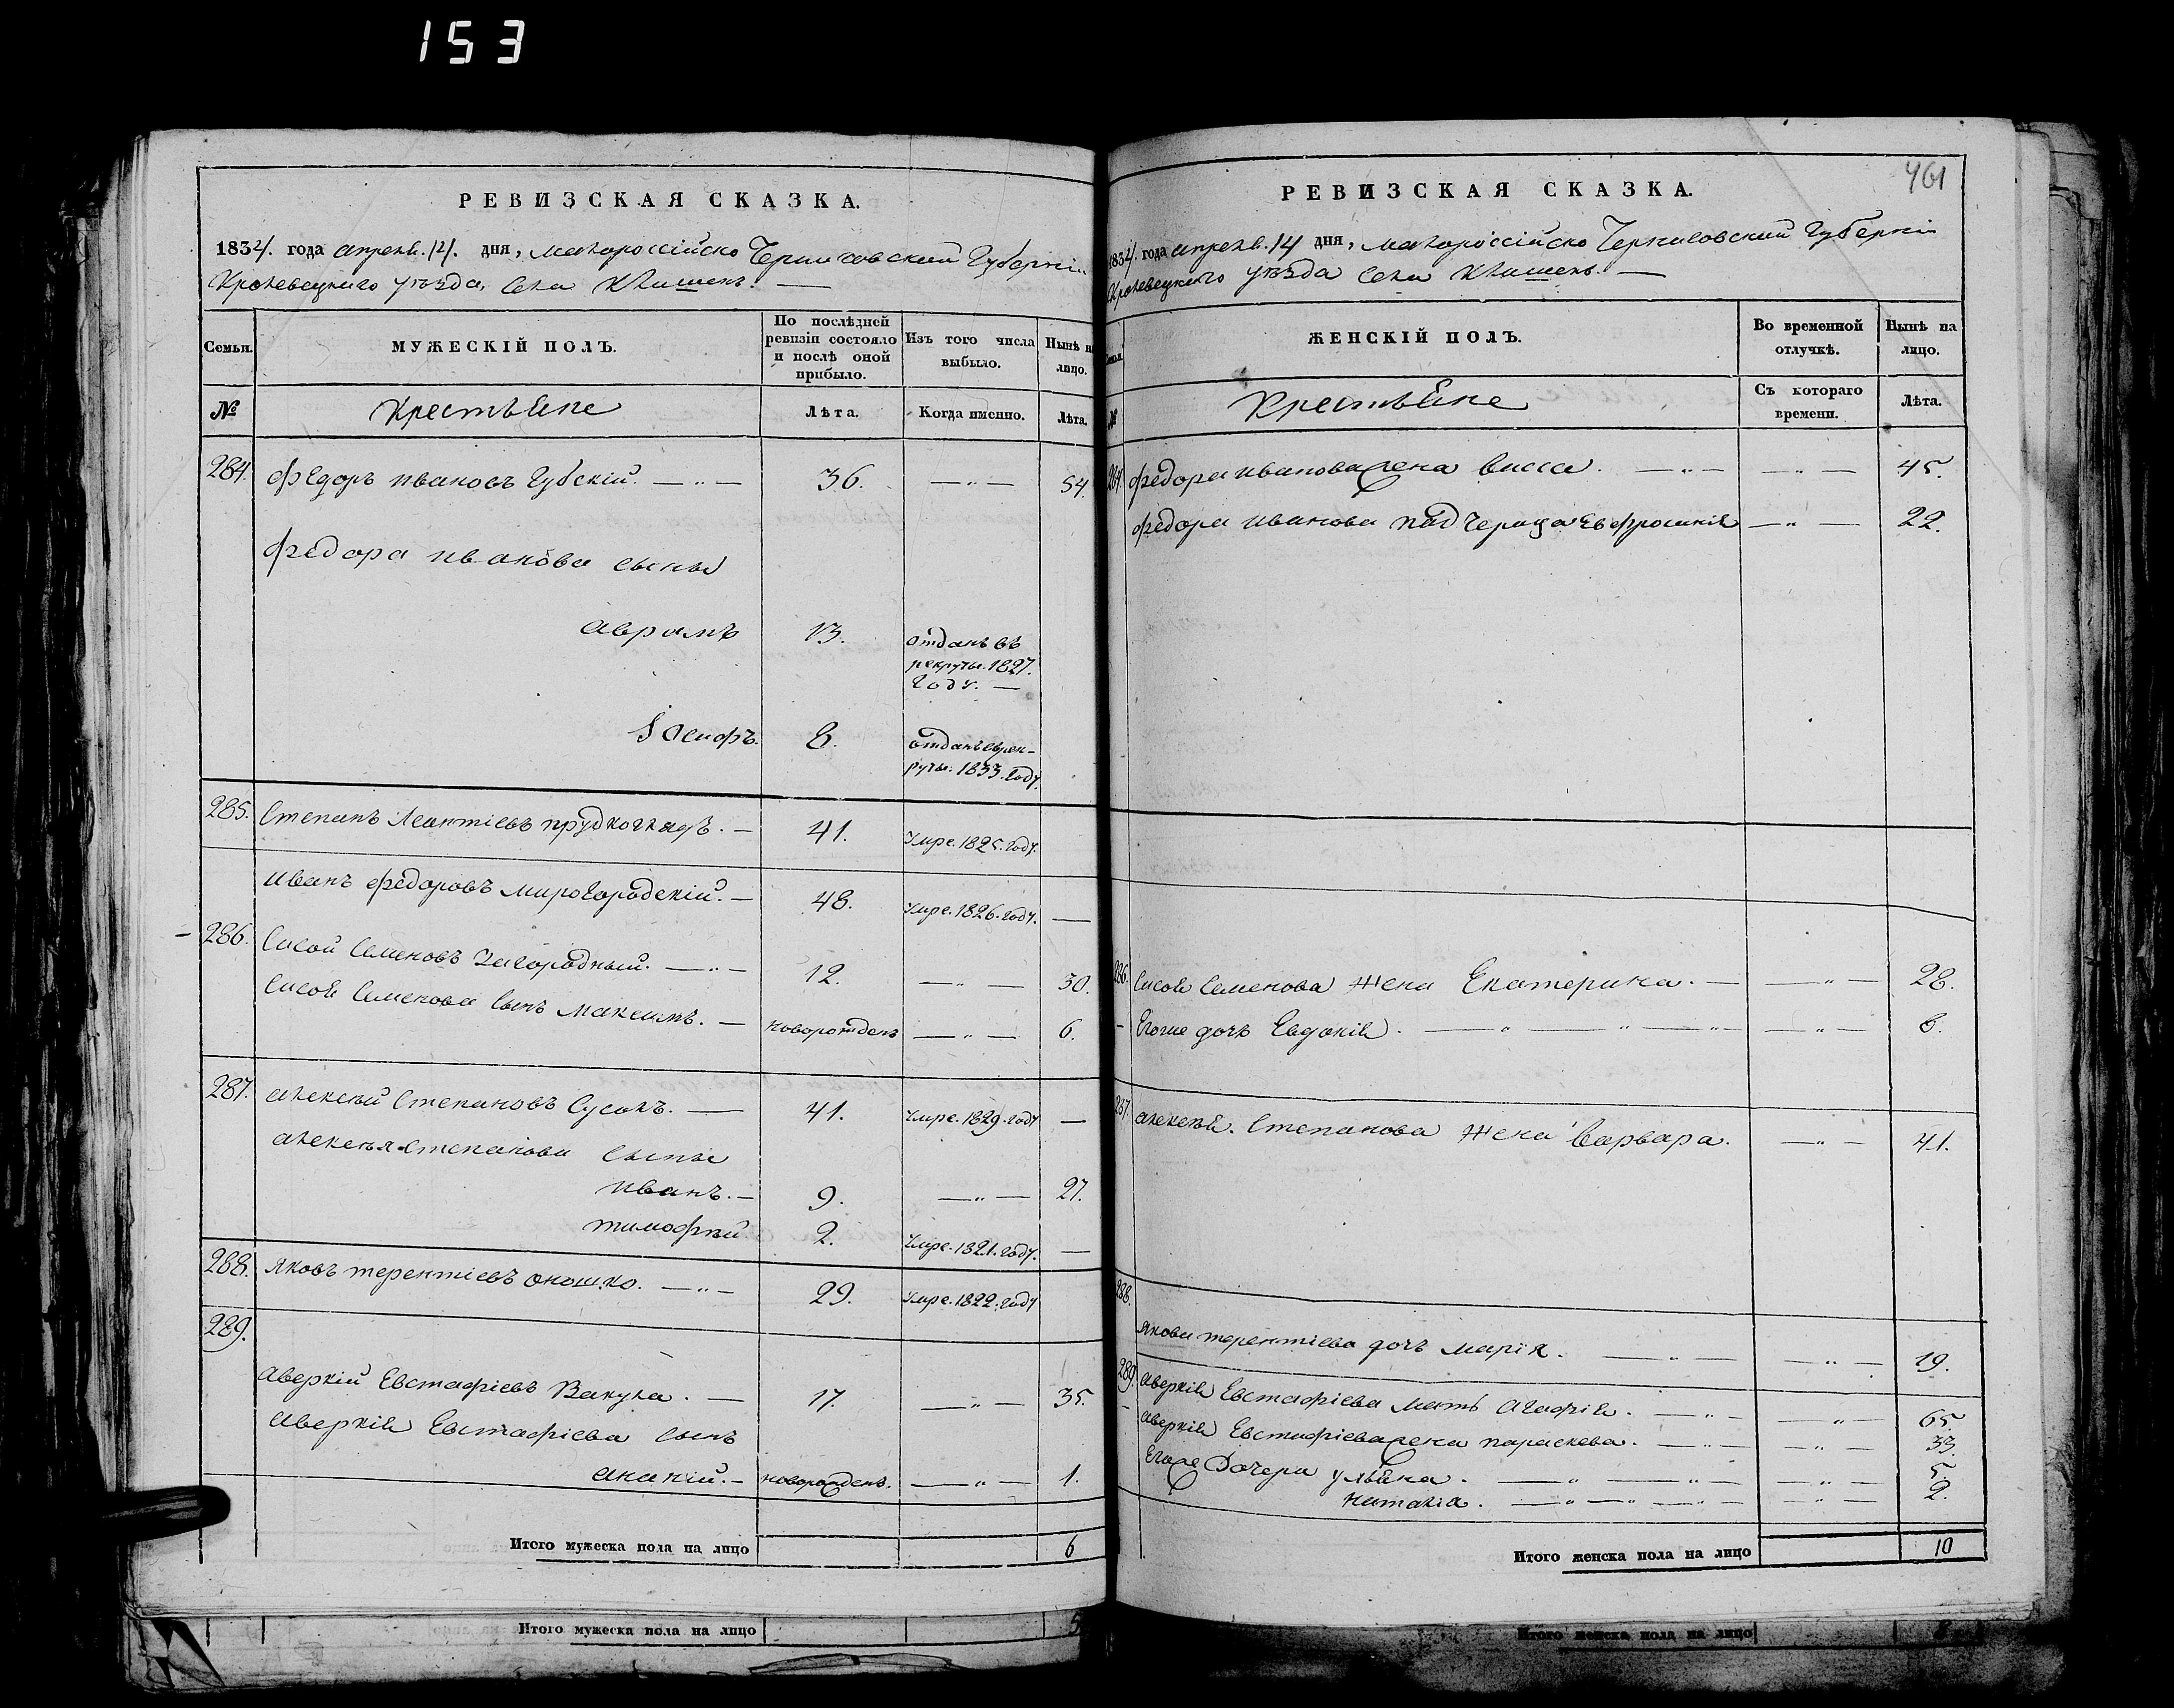 153
РЕВИЗСКАЯ СКАЗКА.
1834. года апрель. 14. дня, малороссійско Черниговский Губерніи
Кролевецкаго уѣзда, села Клишекъ. —
Семьи.
МУЖЕСКІЙ ПОЛЪ.
По послѣдней ревизіи состояло и послѣ оной прибыло.
Изъ того числа выбыло.
Нынѣ на лицо.
№
Крестьяне
Лѣта.
Когда именно.
Лѣта.
284. Федоръ ивановъ Губскій. — „ — 36. — „ — 54.
федора иванова сыны
аврамъ 13. отданъ въ
рекруты. 1827.
году. —
Іосифъ. 8. отданъ врек-
руты. 1833. году.
285. Степанъ Леонтіевъ прудкоглядъ. — 41. умре. 1825. году.
иванъ федоровъ миргородскій. — 48. умре. 1826. году. —
286. Сисой Семеновъ Загородный. — „ — 12. — „ — 30.
Сисоя Семенова сынъ максимъ. — новорожденъ — „ — 6.
287. алексѣй Степановъ Сусолъ. — 41. умре. 1829. году —
алексѣя степанова сыны
иванъ. — 9. — „ — 27.
тимофѣй 2. умре. 1821. году. —
288. яковъ терентіевъ оношко. — „ — 29. умре. 1822. году
289.
аверкій Евстафіевъ Вакула. — 17. — „ — 35.
аверкія Евстафіева сынъ
ананій. — новорожденъ. — „ — 1.
Итого мужеска пола на лицо 6
Итого мужеска пола на лицо 5
461
РЕВИЗСКАЯ СКАЗКА.
1834. года апрель. 14 дня, малороссійско Черниговский Губерніи
Кролевецкаго уѣзда села Клишекъ. —
Семьи.
ЖЕНСКІЙ ПОЛЪ.
Во временной отлучкѣ.
Нынѣ на лицо.
№
Крестьяне
Съ котораго времени.
Лѣта.
284. федора иванова жена васса. — „ — — „ — 45.
федора иванова падчерица Евфросинія — „ — 22.
286. Сисоя Семенова жена Екатерина. — — „ — 28.
Егоже дочъ Евдокія. — „ — „ — „ — — „ — 8.
287. алексѣя. Степанова жена варвара. — „ — 41.
288.
якова терентіева дочъ марія. — „ — — „ — 19.
289. аверкія Евстафіева мать агафія. — „ — — „ — 65
аверкія Евстафіева жена параскева. — „ — — „ — 33.
Егоже Дочери ульяна. — „ — „ — — „ — 5.
наталія. — „ — „ — „ — — „ — 2.
Итого женска пола на лицо 10
Итого женска пола на лицо 8